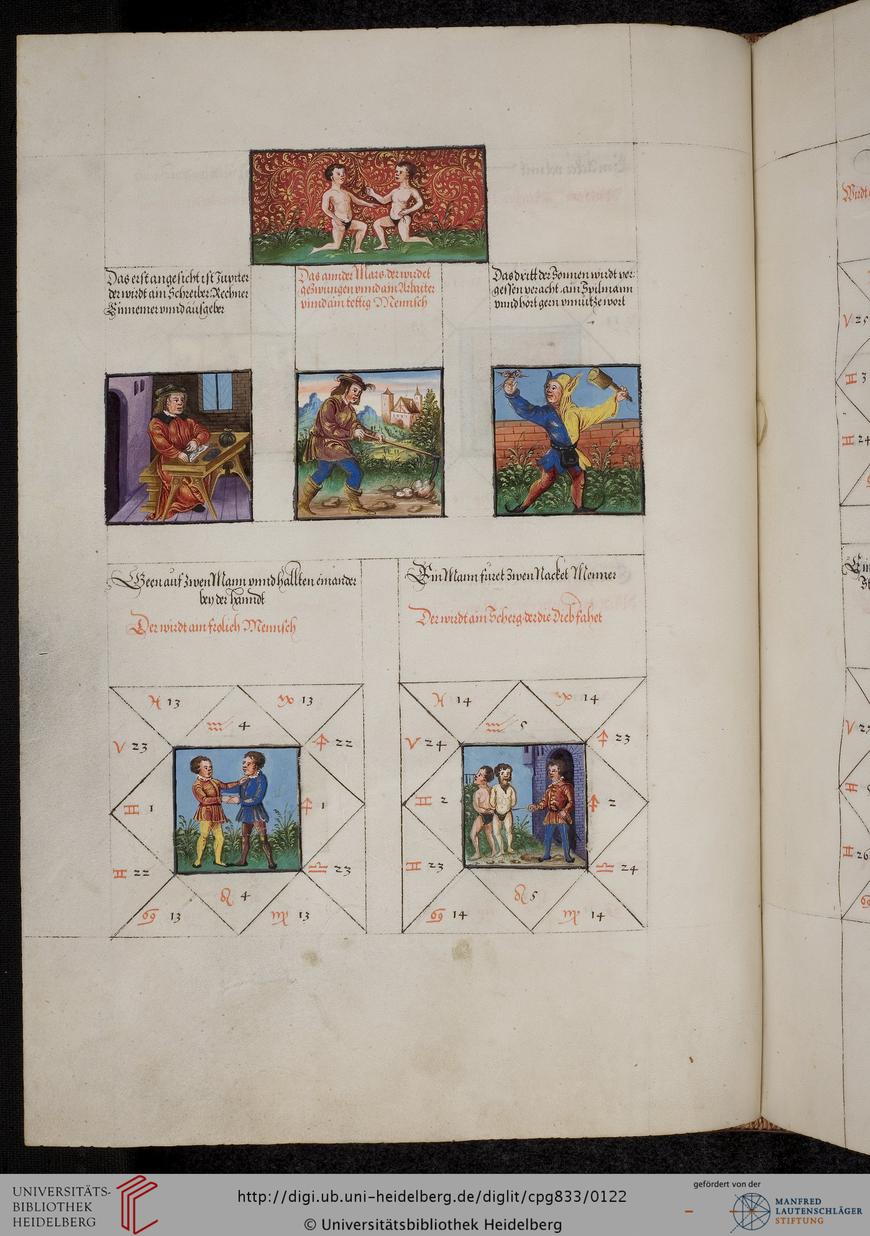 Das erst angesicht ist Jupiter
der wirdt ain Schreiber Rechner
Einnemer vnnd ausgeber
Das annder Mars der wirdet
gezwungen vnnd ain Arbaiter
vnnd ain Mennsch
Das dritt der Sonnen wirdt ver-
gessen veracht ain Spilmann
vnnd hört gern vnnütze wort
Geen auf zwen Mann vnnd hallten einander
bey der hanndt
Der wirdt ain frolich Mennsch
Ein Mann füret zwen Nacket Menner
Der wirdt ain Scherg der die Dieb fahet
♓ 13 ♑ 13
♒ 4
♈ 23 ♐ 22
♊ 1 ♐ 1
♊ 22 ♎ 23
♌ 4
♋ 13 ♍ 13
♓ 14 ♑ 14
♒ 5
♈ 24 ♐ 23
♊ 2 ♐ 2
♊ 23 ♎ 24
♌ 5
♋ 14 ♍ 14
♈ 25
♊ 3
♊ 24
♊ 26
UNIVERSITÄTS-
BIBLIOTHEK
HEIDELBERG
http://digi.ub.uni-heidelberg.de/diglit/cpg833/0122
© Universitätsbibliothek Heidelberg
gefördert von der
MANFRED
LAUTENSCHLÄGER
STIFTUNG